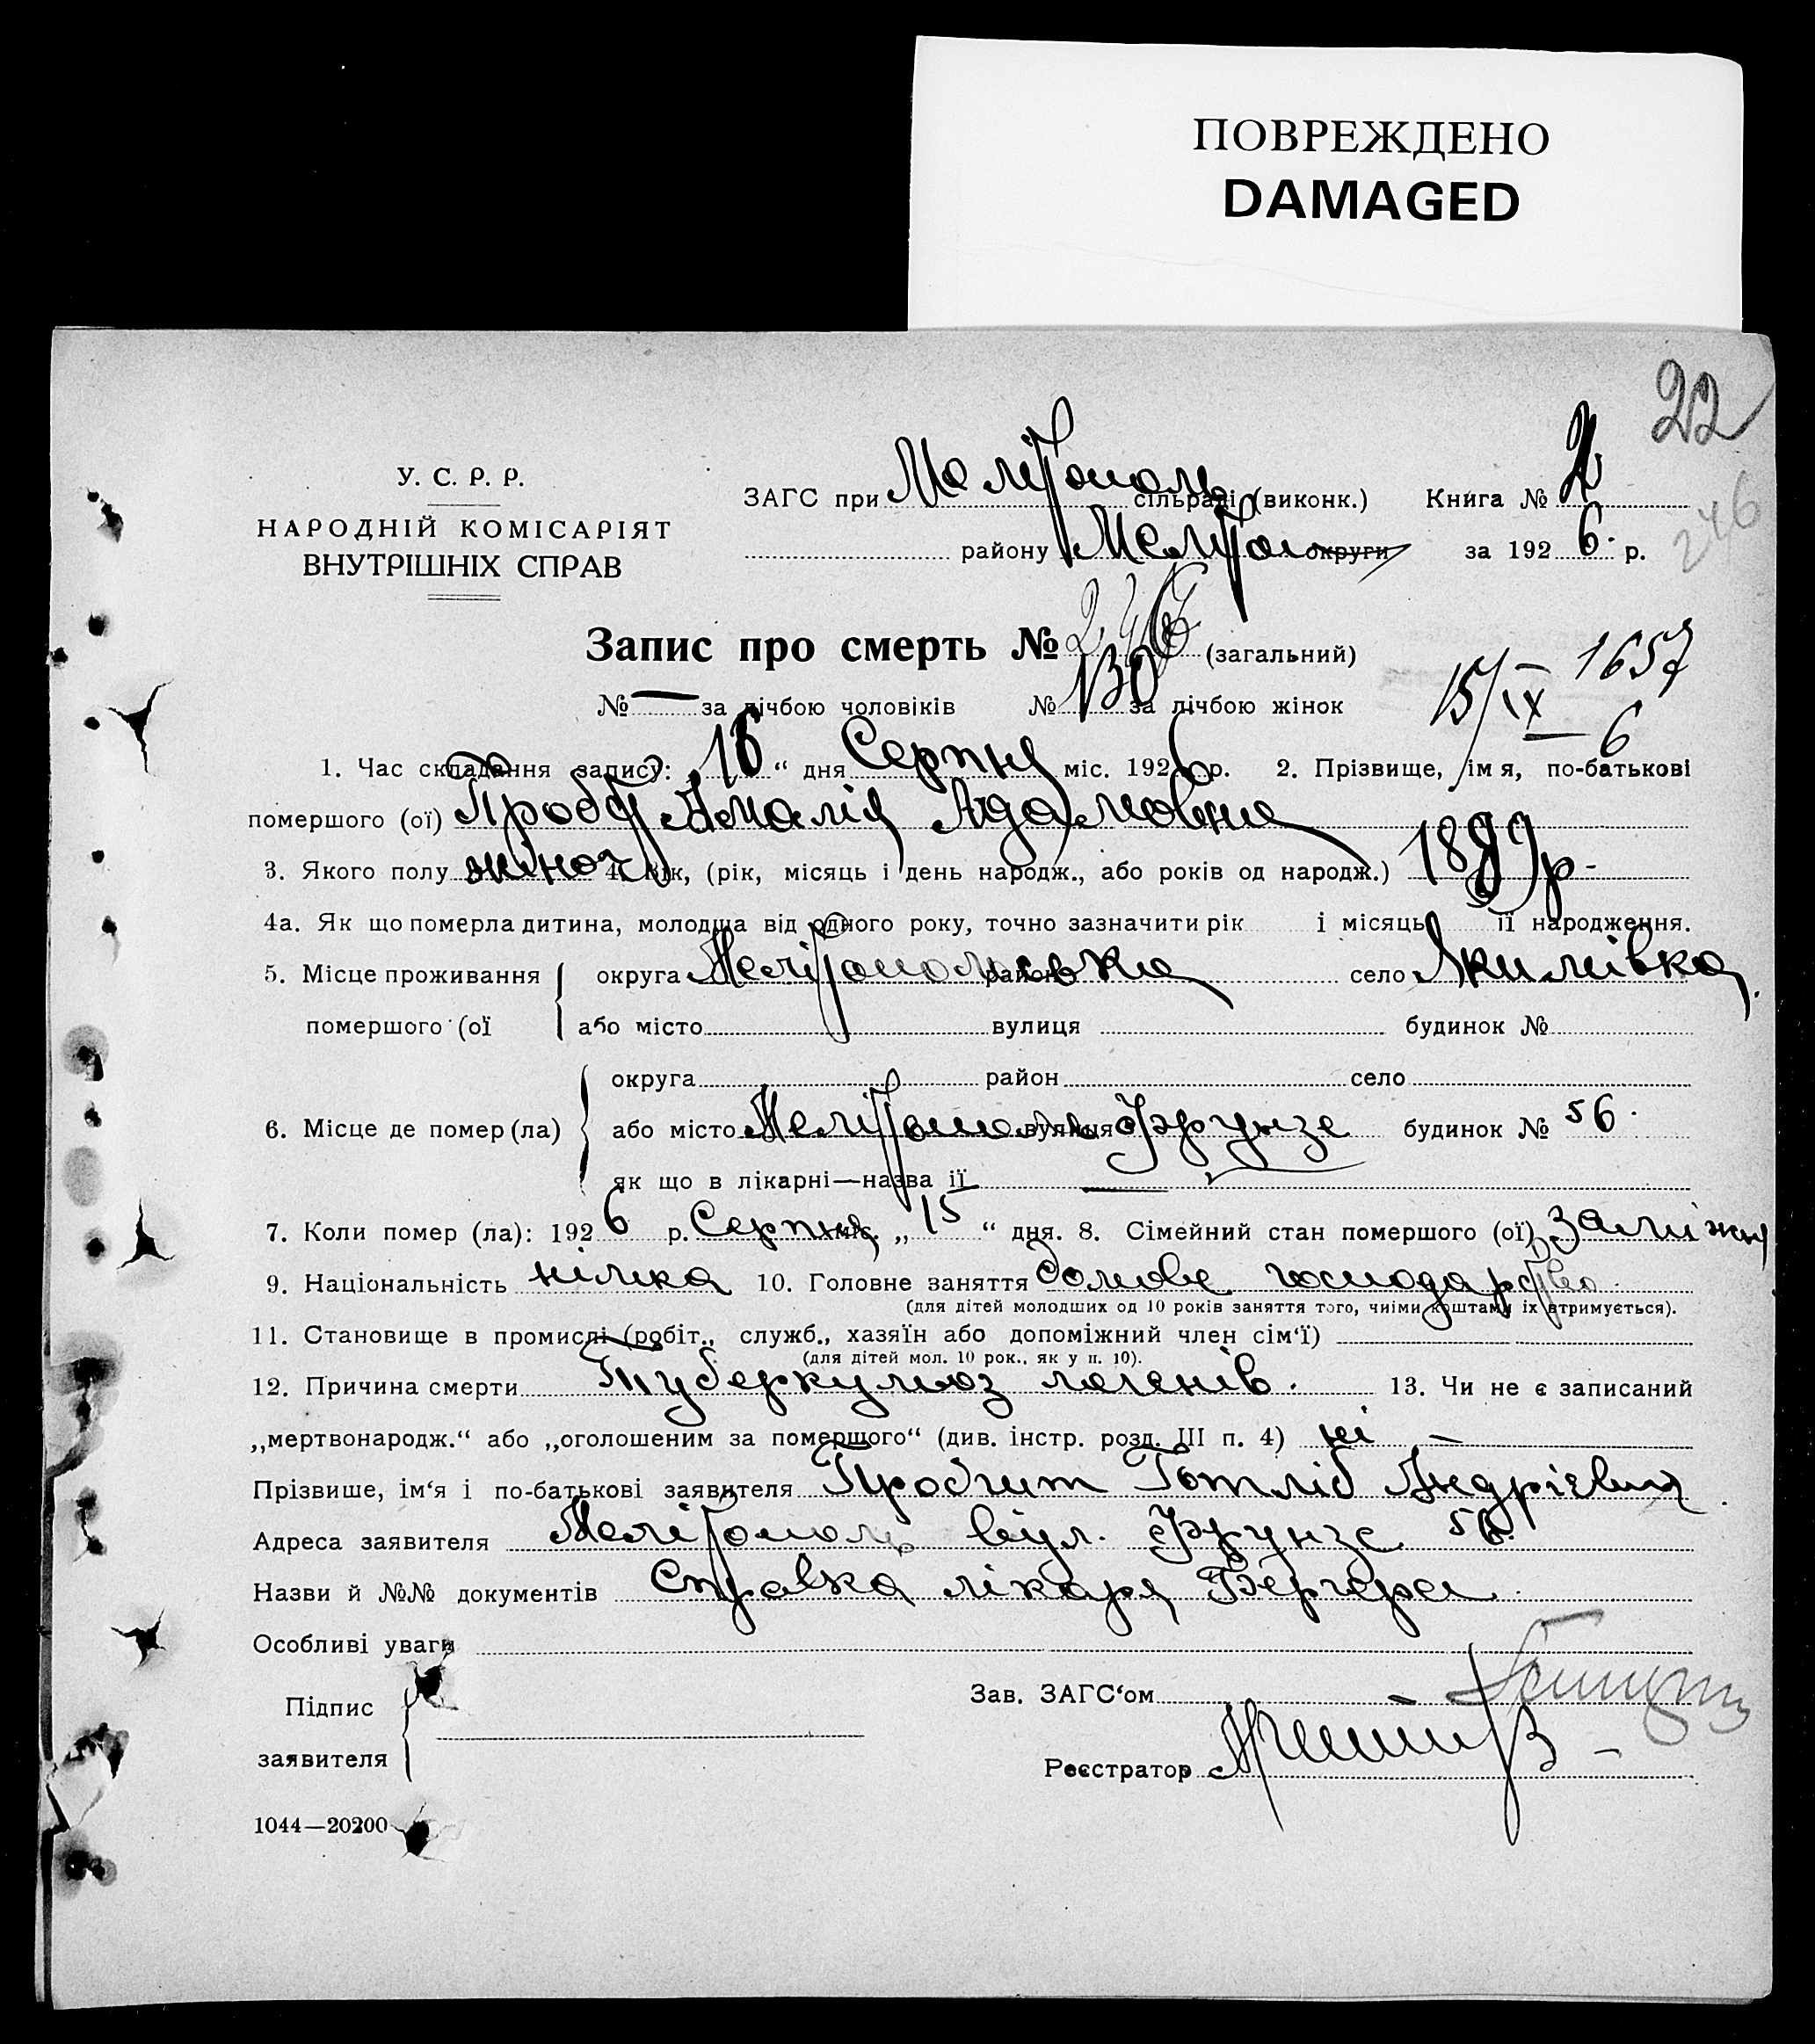 ПОВРЕЖДЕНО
DAMAGED
22
У. С. Р. Р.
НАРОДНІЙ КОМІСАРІЯТ
ВНУТРІШНІХ СПРАВ
ЗАГС при Мелітополь сільраді (виконк.) Книга № 2
району Меліто округи за 192 6. р.
246
Запис про смерть № 246 (загальний)
№ — за лічбою чоловіків № 130 за лічбою жінок
15/IX — 1657
6
1. Час складання запису: „16“ дня Серпня міс. 1926 р. 2. Прізвище, імя, по-батькові
помершого (ої) Амалія Адамовна
3. Якого полу жіноч 4. Вік, (рік, місяць і день народж., або років од народж.) 1899 р-
4а. Як що померла дитина, молодша від одного року, точно зазначити рік і місяць її народження.
5. Місце проживання округа Мелітопольська район село Якимівка.
помершого (ої або місто вулиця будинок №
округа район село
6. Місце де помер (ла) або місто Мелітополь вулиця Фрунзе будинок № 56.
як що в лікарні—назва її —
7. Коли помер (ла): 1926 р. Серпня міс. „15“ дня. 8. Сімейний стан помершого (ої) заміжня
9. Національність німка 10. Головне заняття домове господарство.
(для дітей молодших од 10 років заняття того, чиїми коштами їх втримується).
11. Становище в промислі (робіт., служб., хазяїн або допоміжний член сім‘ї)
(для дітей мол. 10 рок., як у п. 10).
12. Причина смерти Туберкульоз легенів. 13. Чи не є записаний
„мертвонародж.“ або „оголошеним за померщого“ (див. інстр. розд. III п. 4) ні —
Прізвише, ім‘я і по-батькові заявителя Готліб Андрієвич
Адреса заявителя Мелітополь вул. Фрунзе 56.
Назви й №№ документів Справка лікаря Бергера.
Особливі уваги
Підпис
заявителя
Зав. ЗАГС‘ом
Реєстратор
1044—20200